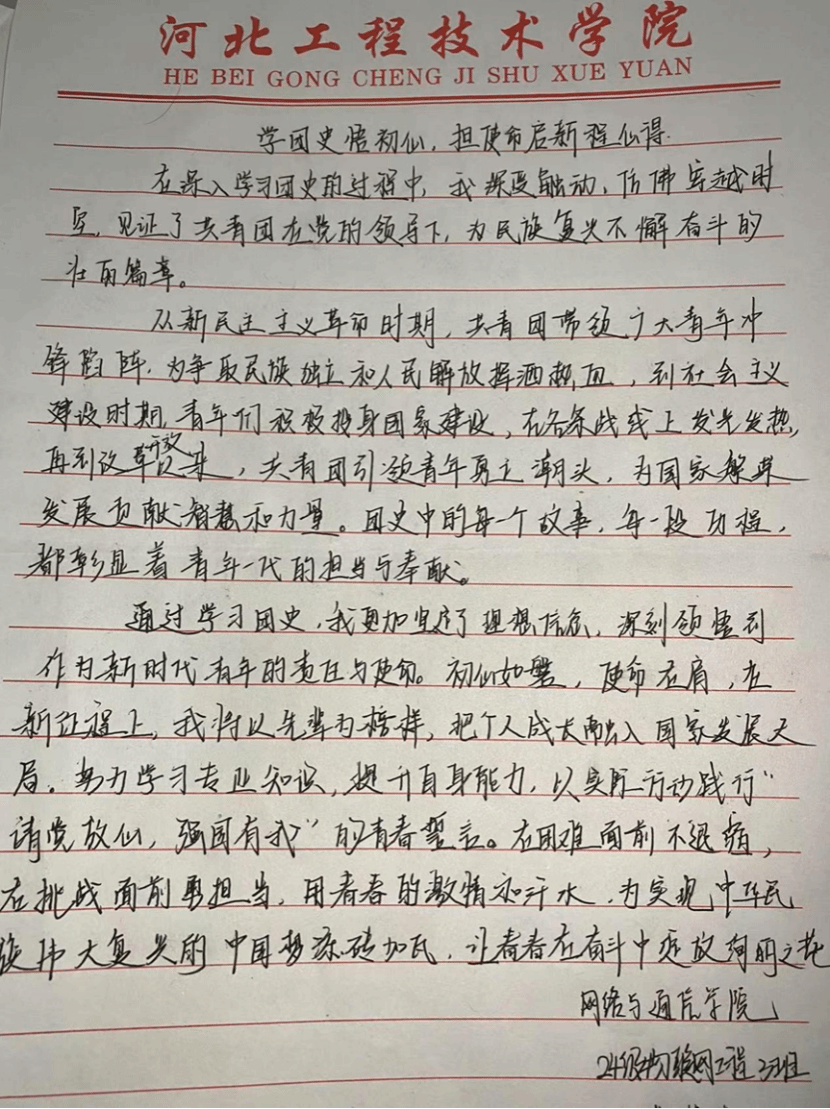 河北工程技术学院
HE BEI GONG CHENG JI SHU XUE YUAN
学团史悟初心，担使命启新程心得.
在深入学习团史的过程中，我深受触动，仿佛穿越时
空，见证了共青团在党的领导下，为民族复兴不懈奋斗的
壮丽篇章。
从新民主主义革命时期，共青团带领广大青年冲
锋陷阵，为争取民族独立和人民解放挥洒热血，到社会主义
建设时期，青年们积极投身国家建设，在各条战线上发光发热，
再到改革开放，共青团引领青年勇立潮头，为国家繁荣
发展贡献智慧和力量。团史中的每一个故事，每一段历程，
都彰显着青年一代的担当与奉献。
通过学习团史，我更加坚定了理想信念，深刻领悟到
作为新时代青年的责任与使命。初心如磐，使命在肩，在
新征程上，我将以先辈为榜样，把个人成长融入国家发展大
局。努力学习专业知识，提升自身能力，以实际行动践行“
请党放心，强国有我”的青春誓言。在困难面前不退缩，
在挑战面前勇担当，用青春的激情和汗水，为实现中华民
族伟大复兴的中国梦添砖加瓦，让青春在奋斗中绽放绚丽之花
网络与通信学院
24级物联网工程2班